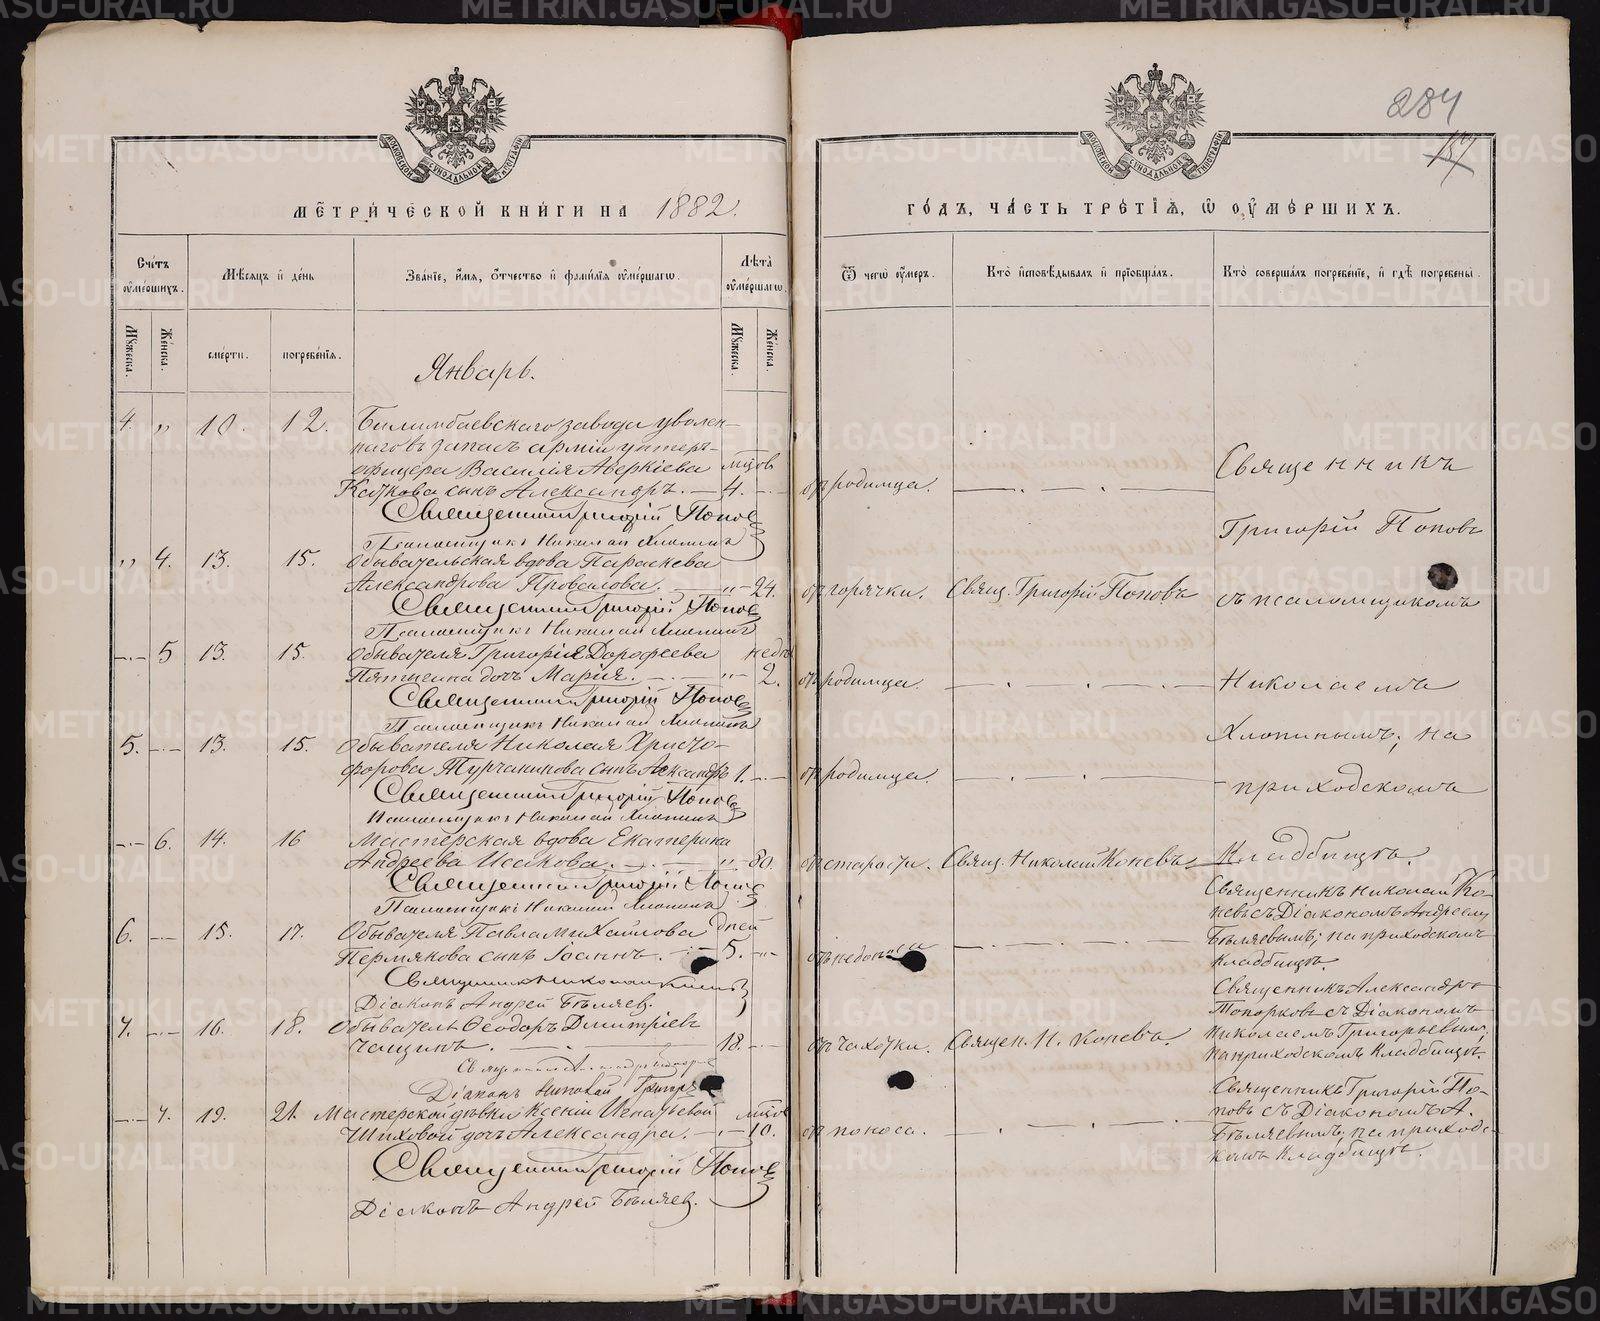 МЕТРИЧЕСКОЙ КНИГИ НА 1882.
Счетъ оумершихъ.
Мѣсяцъ и день
Званіе, имя, отчество и фамилія оумершагω.
Лѣта оумершагω.
Мужеска.
Женска.
смерти.
погребенія.
Мужеска.
Женска.
Январь.
4. " 10. 12. Билимбаевскаго завода уволен-
наго въ запасъ арміи унтеръ-
офицера Василія Аверкіева мцовъ
Качкова сынъ Александръ. 4.
Священникъ Григорій Поповъ
Псаломщикъ Николай Хлопинъ
" 4. 13. 15. Обывательская вдова Параскева
Александрова Провалова. " 24.
Священникъ Григорій Поповъ
Псаломщикъ Николай Хлопинъ
5 13. 15. Обывателя Григорія Дорофеева недѣль
дочь Марія. " 2.
Священникъ Григорій Поповъ
Псаломщикъ Николай Хлопинъ
5. 13. 15. Обывателя Николая Христо-
форова Турчанинова сынъ Александръ 1.
Священникъ Григорій Поповъ
Псаломщикъ Николай Хлопинъ
6. 14. 16 Мастерская вдова Екатерина
Андреева Исакова. " 80.
Священникъ Григорій Поповъ
Псаломщикъ Николай Хлопинъ
6. 15. 17. Обывателя Павла Михайлова дней
Пермякова сынъ Іоаннъ. 5. "
Священникъ Николай Коневъ
Діаконъ Андрей Бѣляев.
7. 16. 18. Обыватель Ѳеодоръ Димитріевъ
Чащинъ. 18.
Священникъ Александръ Топорковъ
Діаконъ Николай Григорьевъ
7. 19. 21. Мастерской дѣвки Ксеніи Игнатьевой мцовъ
Шиховой дочь Александра. 10.
Священникъ Григорій Поповъ
Діаконъ Андрей Бѣляев.
284
157
ГОДЪ, ЧАСТЬ ТРЕТІЯ, Ѡ ОУМЕРШИХЪ.
Ѿ чегω оумеръ.
Кто исповѣдывалъ и пріобщалъ.
Кто совершалъ погребеніе, и гдѣ погребены.
отъ родимца.
Священникъ
Григорій Поповъ
отъ горячки. Свящ. Григорій Поповъ
съ псаломщикомъ
отъ родимца.
Николаемъ
Хлопинымъ; на
отъ родимца.
приходскомъ
отъ старости. Свящ. Николай Коневъ.
кладбищѣ.
Священникъ Николай Ко-
невъ съ Діакономъ Андреемъ
Бѣляевымъ; на приходскомъ
кладбищѣ.
Священникъ Александръ
Топорковъ съ Діакономъ
отъ чахотки. Священ. Н. Коневъ.
Николаемъ Григорьевымъ,
на приходскомъ кладбищѣ.
Священникъ Григорій По-
повъ съ Діакономъ А.
отъ поноса.
Бѣляевымъ, на приходс-
комъ кладбищѣ.
METRIKI.GASO-URAL.RU